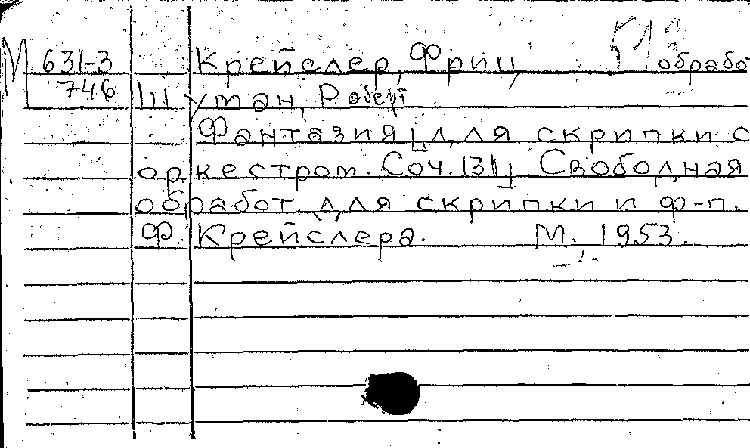 М 631-3 Крейслер, Фриц, обрабо
746 Шуман, Роберт
Фантазия для скрипки с
оркестром. Соч. 131, Свободная
обработ. для скрипки и ф-п.
Ф. Крейслера. М. 1953.